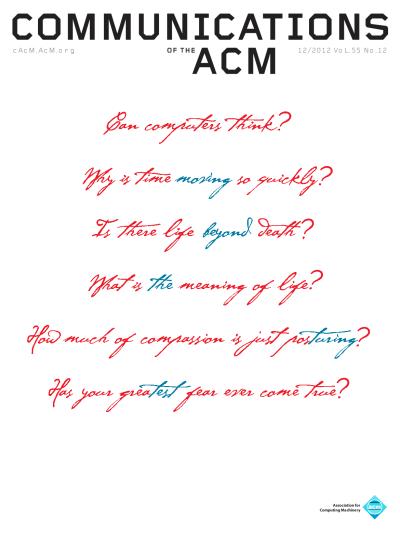 COMMUNICATIONS
cAcM.AcM.org OF THE ACM 12/2012 VoL.55 No.12
Can computers think?
Why is time moving so quickly?
Is there life beyond death?
What is the meaning of life?
How much of compassion is just posturing?
Has your greatest fear ever come true?
Association for
Computing Machinery
acm